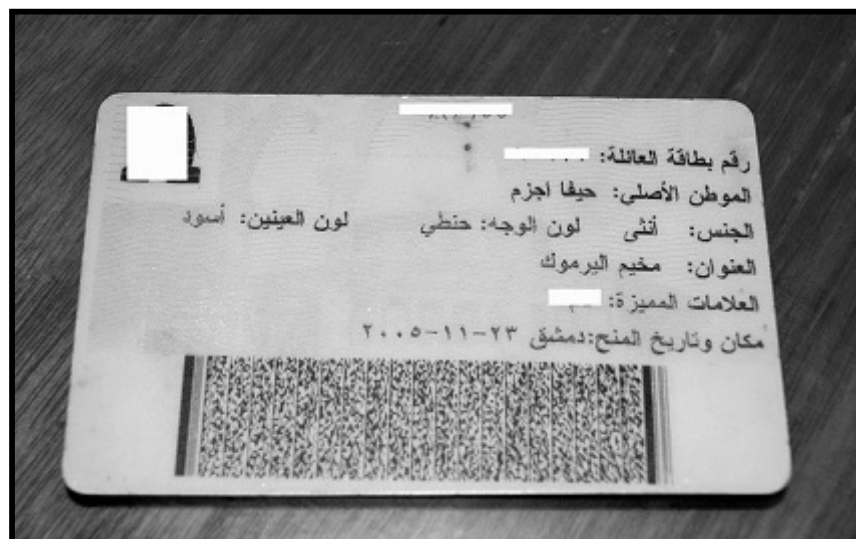 رقم بطاقة العائلة:
الموطن الأصلي: حيفا اجزم
الجنس: أنثى لون الوجه: حنطي لون العينين: أسود
العنوان: مخيم اليرموك
العلامات المميزة:
مكان وتاريخ المنح:دمشق ٢٣-١١-٢٠٠٥